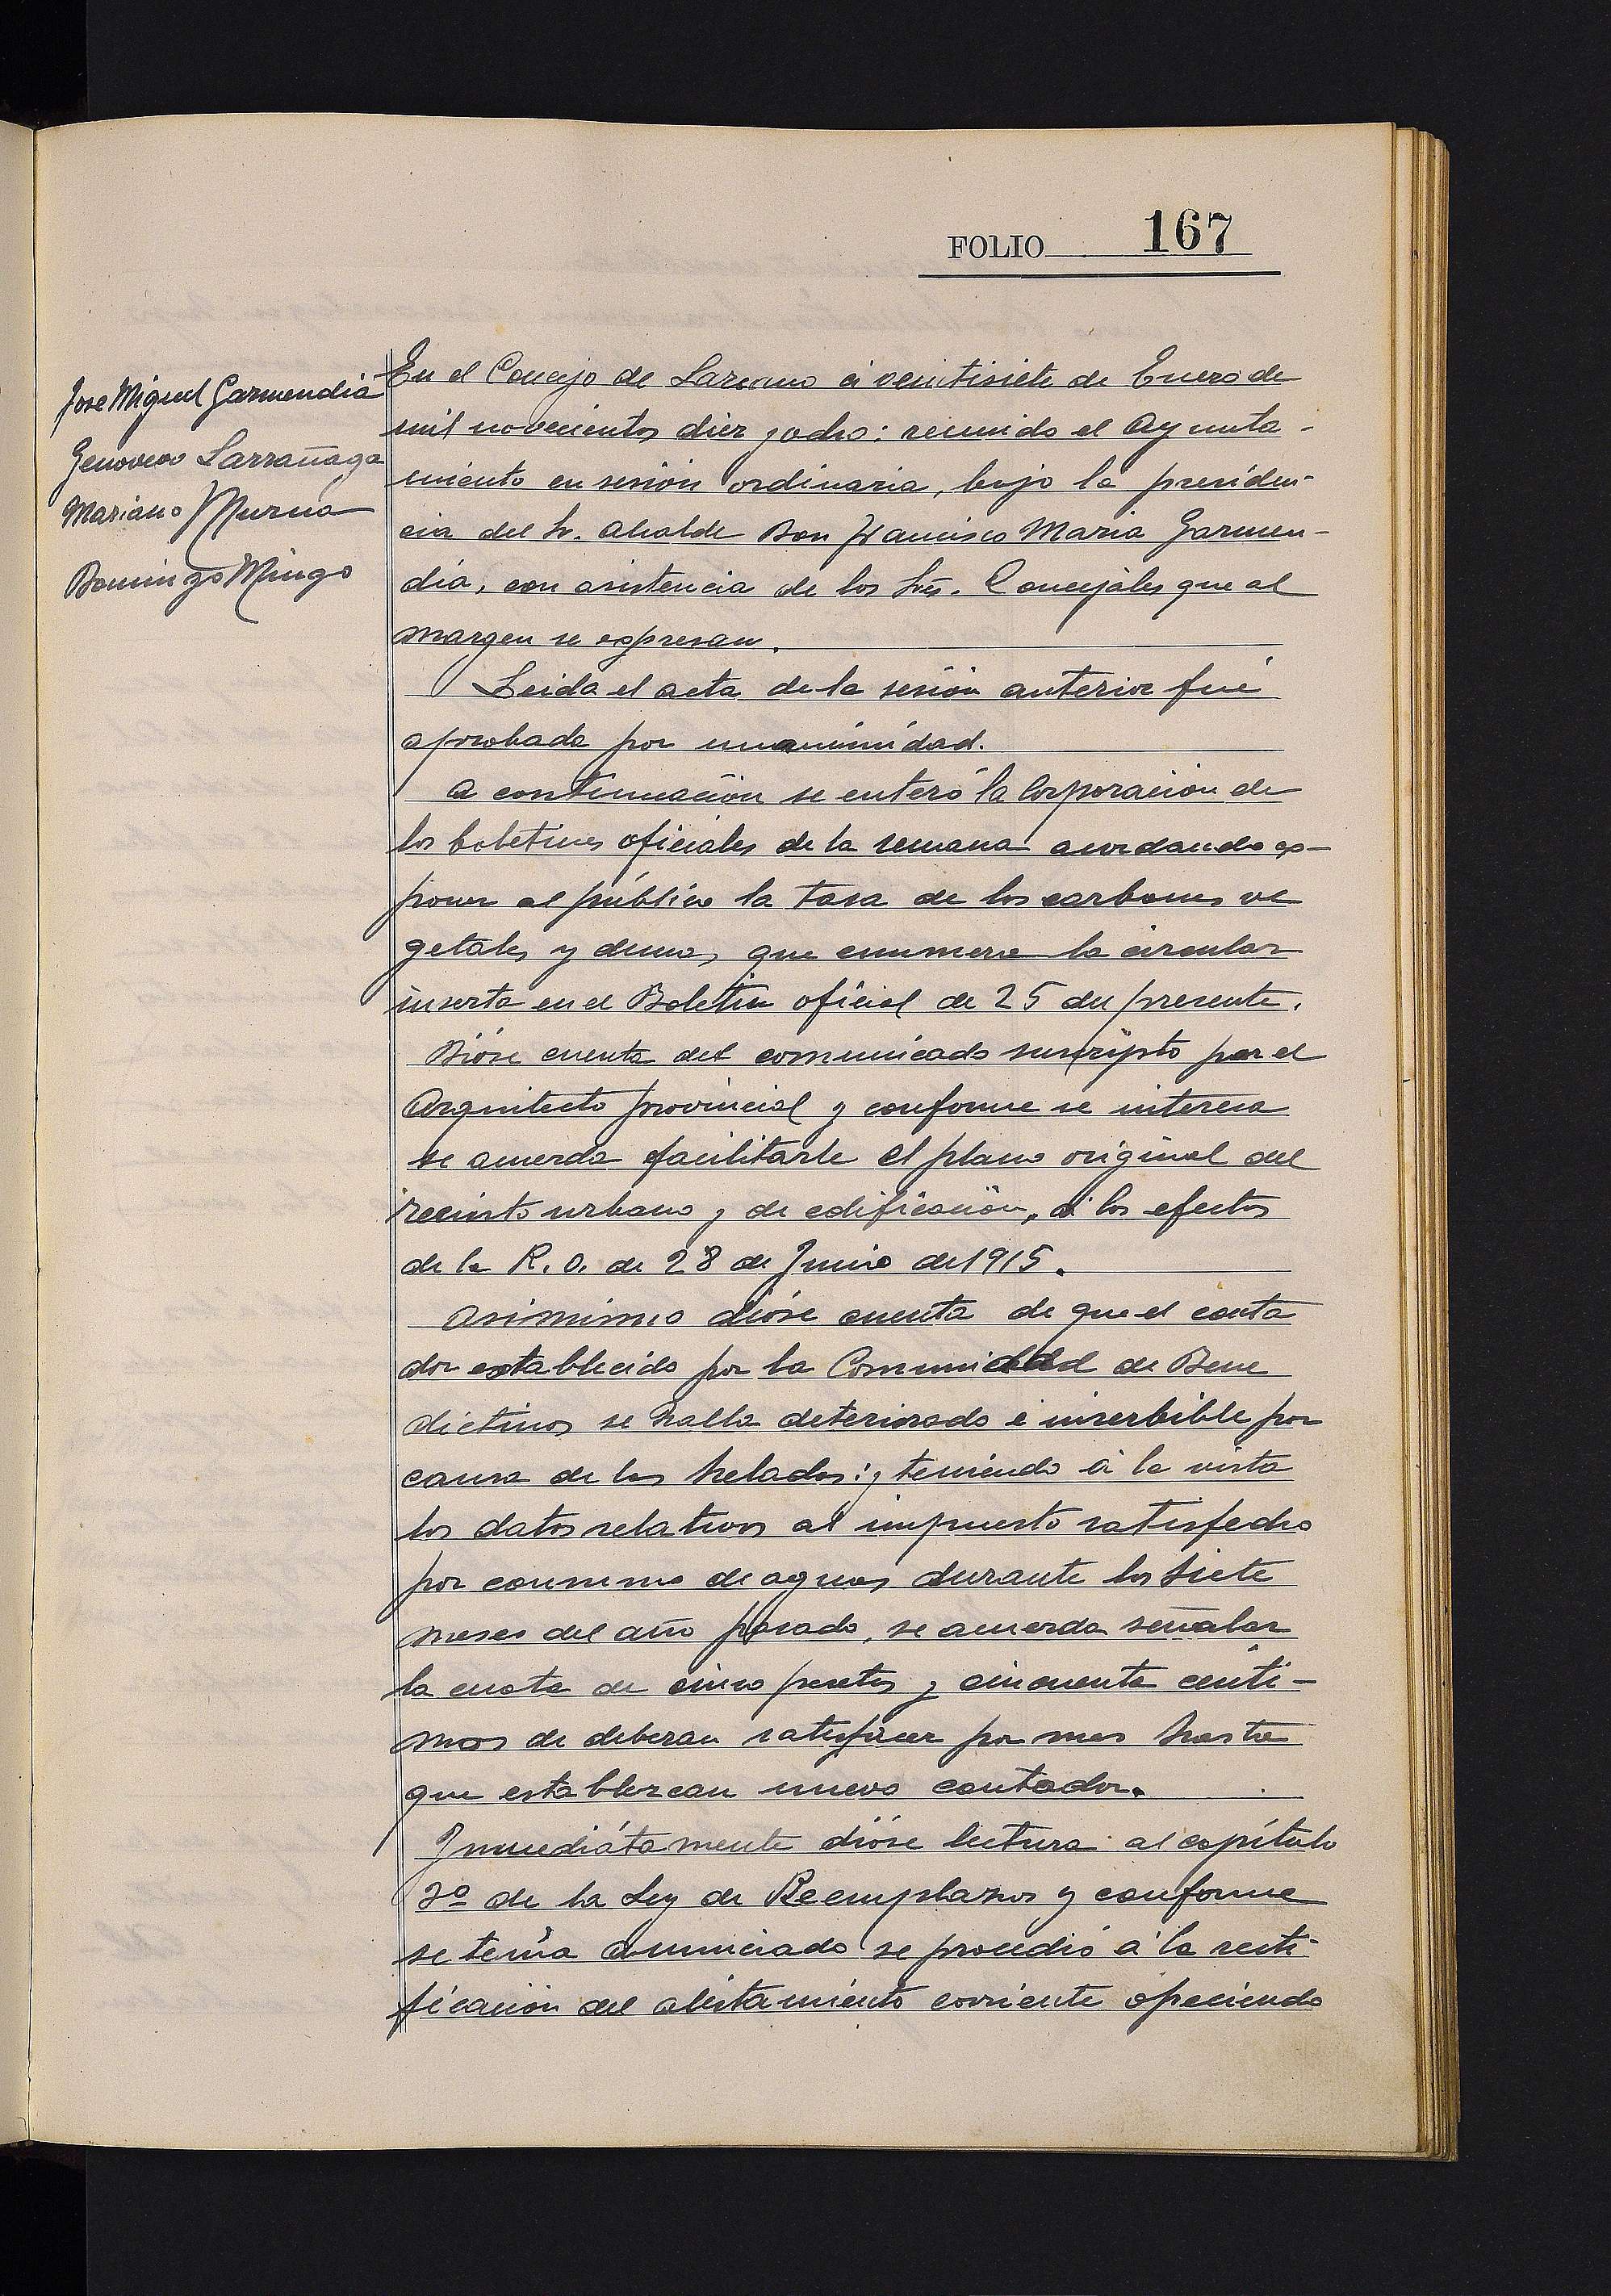 FOLIO 167
Jose Miguel Garmendia
Genoveo Larrañaga
Mariano Murua
Domingo Mingo
En el Concejo de Lazcano á veintisiete de Enero de
mil novecientos diez y ocho: reunido el Ayunta-
miento en sesión ordinaria, bajo la presiden-
cia del Sr. Alcalde Don Francisco Maria Garmen-
día, con asistencia de los Srs. Concejales que al
margen se expresan.
Leida el acta de la sesión anterior fué
aprobada por unanimidad.
A continuación se enteró la Corporación de
los boletines oficiales de la semana acordando ex-
poner al público la tasa de los carbones ve
getales y demas, que enumera la circular
inserta en el Boletin oficial de 25 del presente.
Dióse cuenta del comunicado suscripto por el
Arquitecto provincial y conforme se interesa
se acuerda facilitarle el plano original del
recinto urbano y de edificación, á los efectos
de la R. O. de 28 de Junio de 1915.
Asimismo dióse cuenta de que el conta
dor establecido por la Comunidad de Bene
dictinos se halla deteriorado é inserbible por
causa de las heladas: y teniendo á la vista
los datos relativos al impuesto satisfecho
por consumo de aguas durante los siete
meses del año pasado, se acuerda señalar
la cuota de cinco pesetas y cincuenta centi-
mos de deberan satisfacer por mes hasta
que establezcan nuevo contador.
Inmediátamente dióse lectura al capítulo
3º de la Ley de Reemplazos y conforme
se tenia anunciado se procedió á la recti-
ficación del alistamiento corriente apeciendo